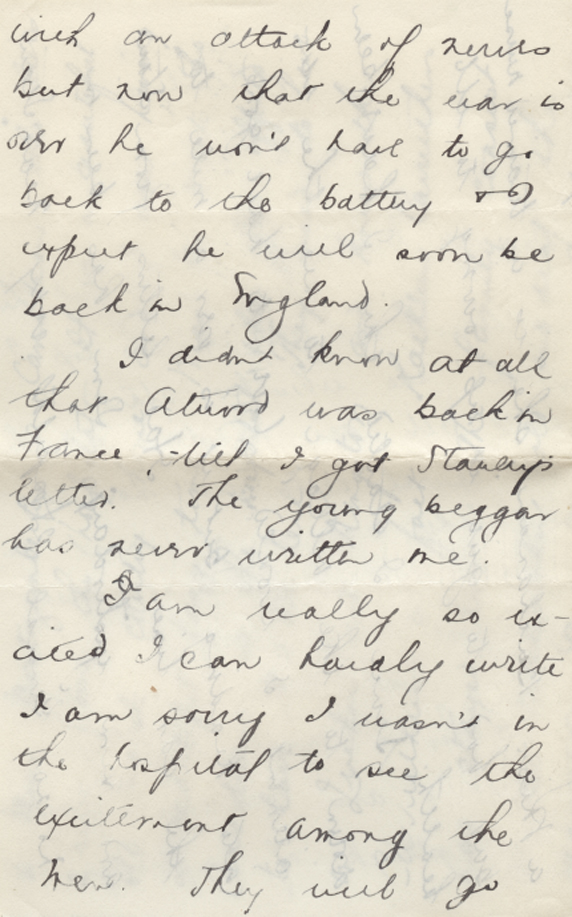 with an attack of nerves
but now that the war is
over he won't have to go
back to the battery & I
expect he will soon be
back in England.
I didn't know at all
that Atword was back in
France, till I got Stanley's
letter. The young beggar
has never written me.
I am really so ex-
cited I can hardly write
I am sorry I wasn't in
the hospital to see the
excitement among the
men. They will go